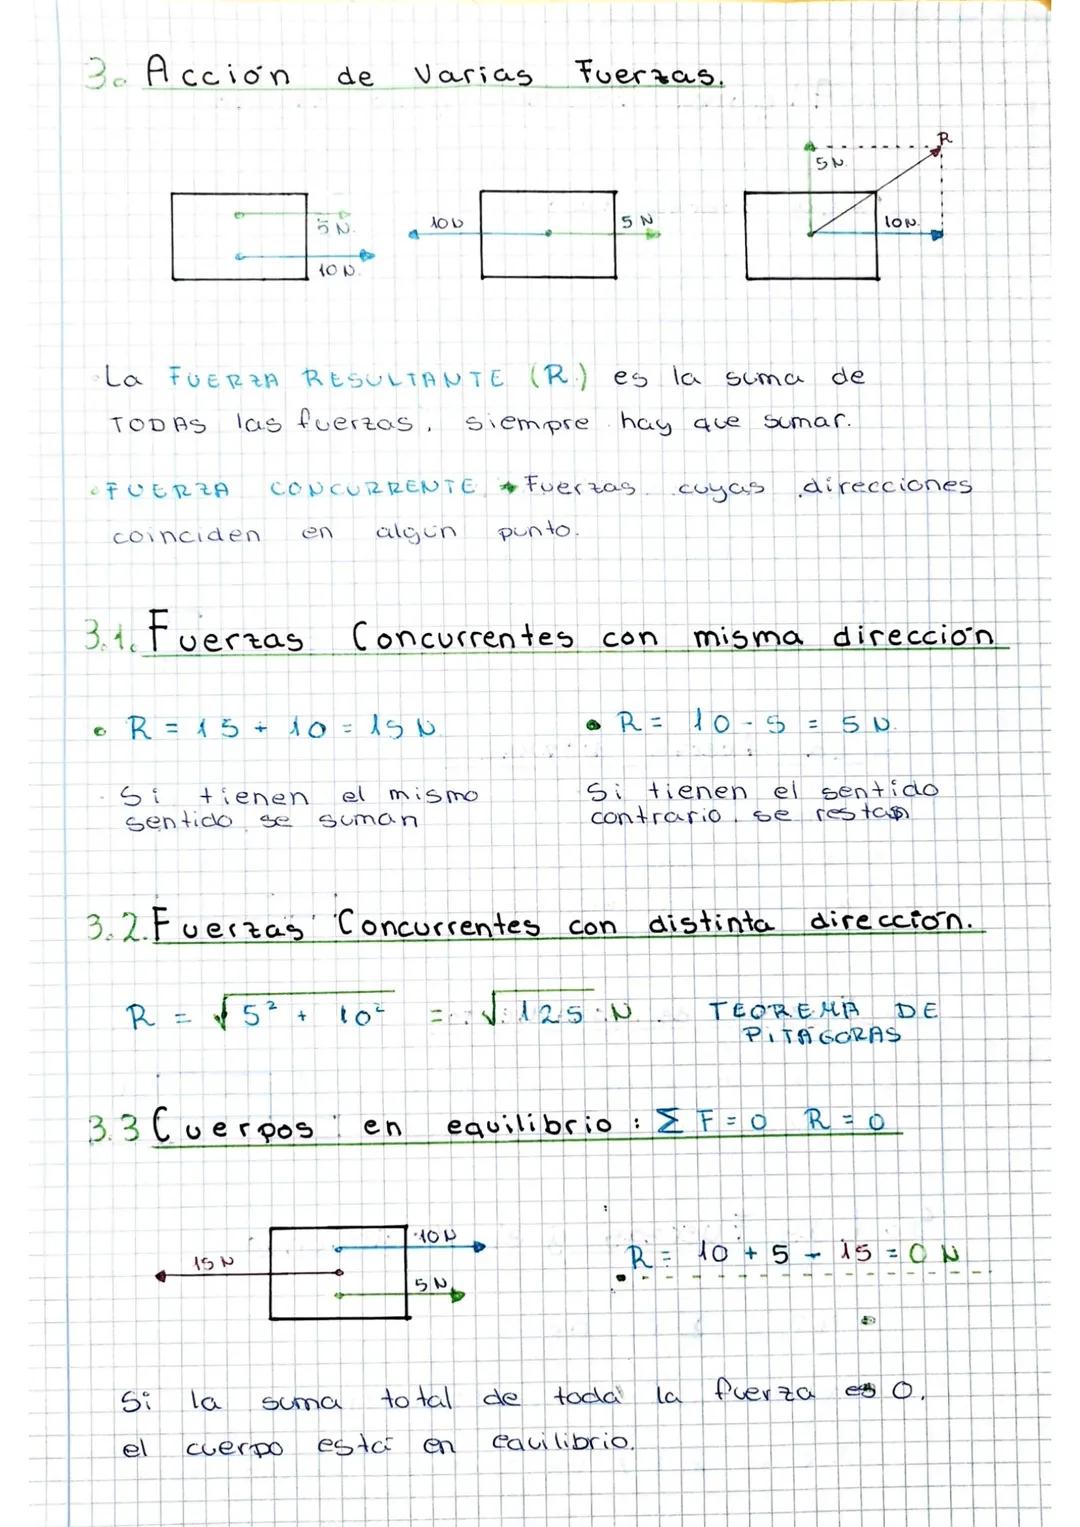 3. Acción de Varias Fuerzas.
5 N.
10 N.
10 N
5 N
5 N.
R
10 N.
La FUERZA RESULTANTE (R.) es la suma de
TODAS las fuerzas, siempre hay que sumar.
FUERZA CONCURRENTE → Fuerzas cuyas direcciones
coinciden en algún punto.
3.1. Fuerzas Concurrentes con misma dirección
• R = 15 + 10 = 15 N
• R = 10 - 5 = 5 N.
Si tienen el mismo
sentido se suman
Si tienen el sentido
contrario, se restan
3.2. Fuerzas Concurrentes con distinta dirección.
R = √5² + 10² = √125 N
TEOREMA DE
PITÁGORAS
3.3 Cuerpos en equilibrio: Σ F = 0 R = 0
15 N
10 N
5 N
R = 10 + 5 - 15 = 0 N
Si la suma total de toda la fuerza es 0,
el cuerpo está en equilibrio.